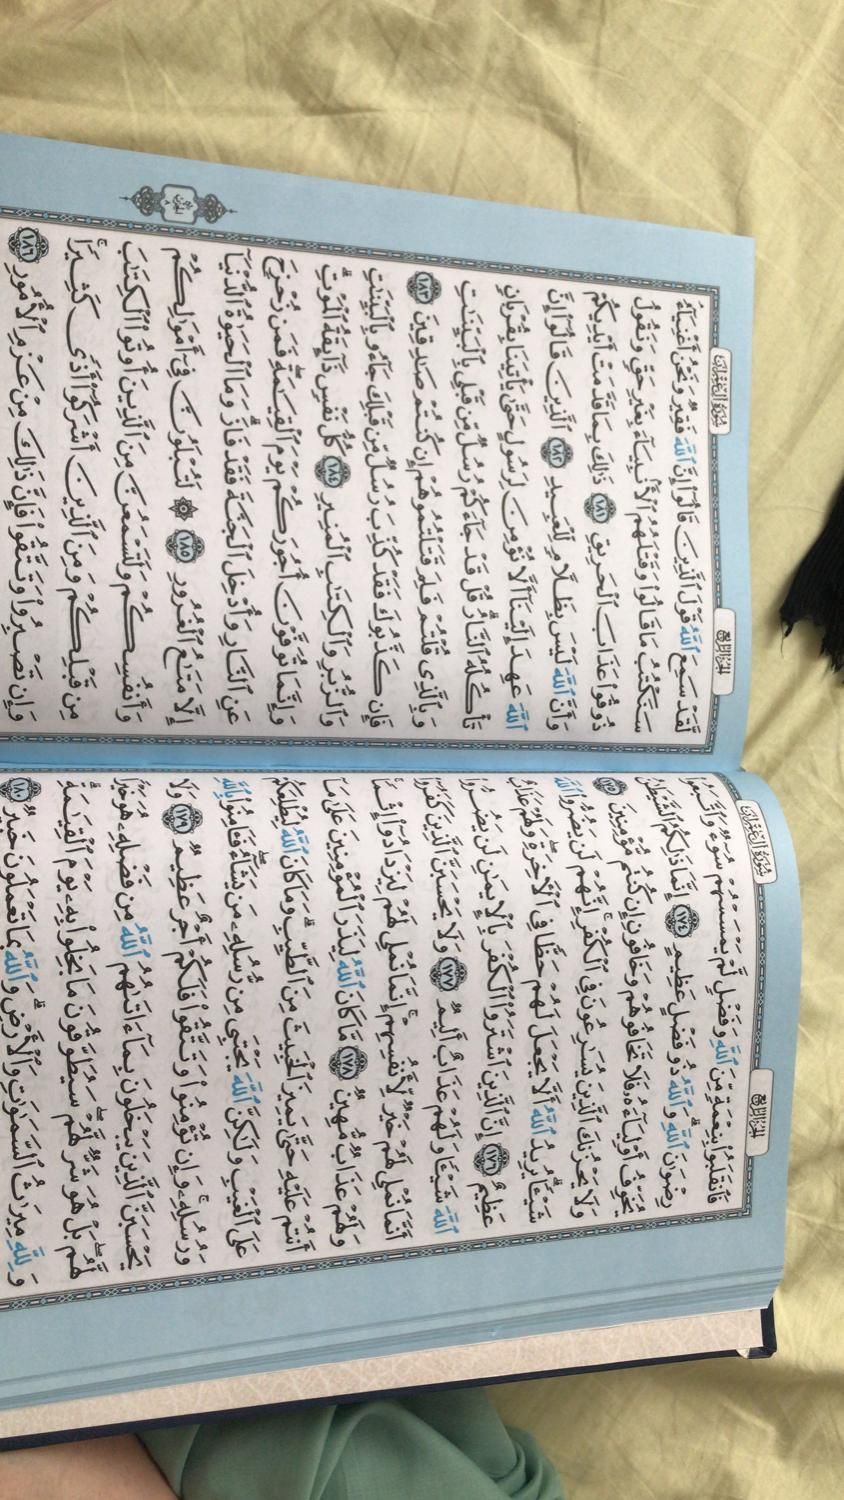 سورة آل عمران
الجزء الرابع
فَٱنقَلَبُواْ بِنِعْمَةٍ مِّنَ ٱللَّهِ وَفَضْلٍ لَّمْ يَمْسَسْهُمْ سُوٓءٌ وَٱتَّبَعُواْ
رِضْوَٰنَ ٱللَّهِ وَٱللَّهُ ذُو فَضْلٍ عَظِيمٍ ١٧٤ إِنَّمَا ذَٰلِكُمُ ٱلشَّيْطَٰنُ
يُخَوِّفُ أَوْلِيَآءَهُۥ فَلَا تَخَافُوهُمْ وَخَافُونِ إِن كُنتُم مُّؤْمِنِينَ ١٧٥
وَلَا يَحْزُنكَ ٱلَّذِينَ يُسَٰرِعُونَ فِي ٱلْكُفْرِ إِنَّهُمْ لَن يَضُرُّواْ ٱللَّهَ
شَيْـًٔا يُرِيدُ ٱللَّهُ أَلَّا يَجْعَلَ لَهُمْ حَظًّا فِي ٱلْأَخِرَةِ وَلَهُمْ عَذَابٌ
عَظِيمٌ ١٧٦ إِنَّ ٱلَّذِينَ ٱشْتَرَوُاْ ٱلْكُفْرَ بِٱلْإِيمَٰنِ لَن يَضُرُّواْ
ٱللَّهَ شَيْـًٔا وَلَهُمْ عَذَابٌ أَلِيمٌ ١٧٧ وَلَا يَحْسَبَنَّ ٱلَّذِينَ كَفَرُوٓاْ
أَنَّمَا نُمْلِي لَهُمْ خَيْرٌ لِّأَنفُسِهِمْ إِنَّمَا نُمْلِي لَهُمْ لِيَزْدَادُوٓاْ إِثْمًا
وَلَهُمْ عَذَابٌ مُّهِينٌ ١٧٨ مَّا كَانَ ٱللَّهُ لِيَذَرَ ٱلْمُؤْمِنِينَ عَلَىٰ مَآ
أَنتُمْ عَلَيْهِ حَتَّىٰ يَمِيزَ ٱلْخَبِيثَ مِنَ ٱلطَّيِّبِ وَمَا كَانَ ٱللَّهُ لِيُطْلِعَكُمْ
عَلَى ٱلْغَيْبِ وَلَٰكِنَّ ٱللَّهَ يَجْتَبِي مِن رُّسُلِهِۦ مَن يَشَآءُ فَـَٔامِنُواْ بِٱللَّهِ
وَرُسُلِهِۦ وَإِن تُؤْمِنُواْ وَتَتَّقُواْ فَلَكُمْ أَجْرٌ عَظِيمٌ ١٧٩ وَلَا
يَحْسَبَنَّ ٱلَّذِينَ يَبْخَلُونَ بِمَآ ءَاتَىٰهُمُ ٱللَّهُ مِن فَضْلِهِۦ هُوَ خَيْرًا
لَّهُم بَلْ هُوَ شَرٌّ لَّهُمْ سَيُطَوَّقُونَ مَا بَخِلُواْ بِهِۦ يَوْمَ ٱلْقِيَٰمَةِ
وَلِلَّهِ مِيرَٰثُ ٱلسَّمَٰوَٰتِ وَٱلْأَرْضِ وَٱللَّهُ بِمَا تَعْمَلُونَ خَبِيرٌ ١٨٠
سورة آل عمران
الجزء الرابع
لَّقَدْ سَمِعَ ٱللَّهُ قَوْلَ ٱلَّذِينَ قَالُوٓاْ إِنَّ ٱللَّهَ فَقِيرٌ وَنَحْنُ أَغْنِيَآءُ
سَنَكْتُبُ مَا قَالُواْ وَقَتْلَهُمُ ٱلْأَنۢبِيَآءَ بِغَيْرِ حَقٍّ وَنَقُولُ
ذُوقُواْ عَذَابَ ٱلْحَرِيقِ ١٨١ ذَٰلِكَ بِمَا قَدَّمَتْ أَيْدِيكُمْ
وَأَنَّ ٱللَّهَ لَيْسَ بِظَلَّامٍ لِّلْعَبِيدِ ١٨٢ ٱلَّذِينَ قَالُوٓاْ إِنَّ
ٱللَّهَ عَهِدَ إِلَيْنَآ أَلَّا نُؤْمِنَ لِرَسُولٍ حَتَّىٰ يَأْتِيَنَا بِقُرْبَانٍ
تَأْكُلُهُ ٱلنَّارُ قُلْ قَدْ جَآءَكُمْ رُسُلٌ مِّن قَبْلِي بِٱلْبَيِّنَٰتِ
وَبِٱلَّذِي قُلْتُمْ فَلِمَ قَتَلْتُمُوهُمْ إِن كُنتُمْ صَٰدِقِينَ ١٨٣
فَإِن كَذَّبُوكَ فَقَدْ كُذِّبَ رُسُلٌ مِّن قَبْلِكَ جَآءُو بِٱلْبَيِّنَٰتِ
وَٱلزُّبُرِ وَٱلْكِتَٰبِ ٱلْمُنِيرِ ١٨٤ كُلُّ نَفْسٍ ذَآئِقَةُ ٱلْمَوْتِ
وَإِنَّمَا تُوَفَّوْنَ أُجُورَكُمْ يَوْمَ ٱلْقِيَٰمَةِ فَمَن زُحْزِحَ
عَنِ ٱلنَّارِ وَأُدْخِلَ ٱلْجَنَّةَ فَقَدْ فَازَ وَمَا ٱلْحَيَوٰةُ ٱلدُّنْيَآ
إِلَّا مَتَٰعُ ٱلْغُرُورِ ١٨٥ ۞ لَتُبْلَوُنَّ فِيٓ أَمْوَٰلِكُمْ
وَأَنفُسِكُمْ وَلَتَسْمَعُنَّ مِنَ ٱلَّذِينَ أُوتُواْ ٱلْكِتَٰبَ
مِن قَبْلِكُمْ وَمِنَ ٱلَّذِينَ أَشْرَكُوٓاْ أَذًى كَثِيرًا
وَإِن تَصْبِرُواْ وَتَتَّقُواْ فَإِنَّ ذَٰلِكَ مِنْ عَزْمِ ٱلْأُمُورِ ١٨٦